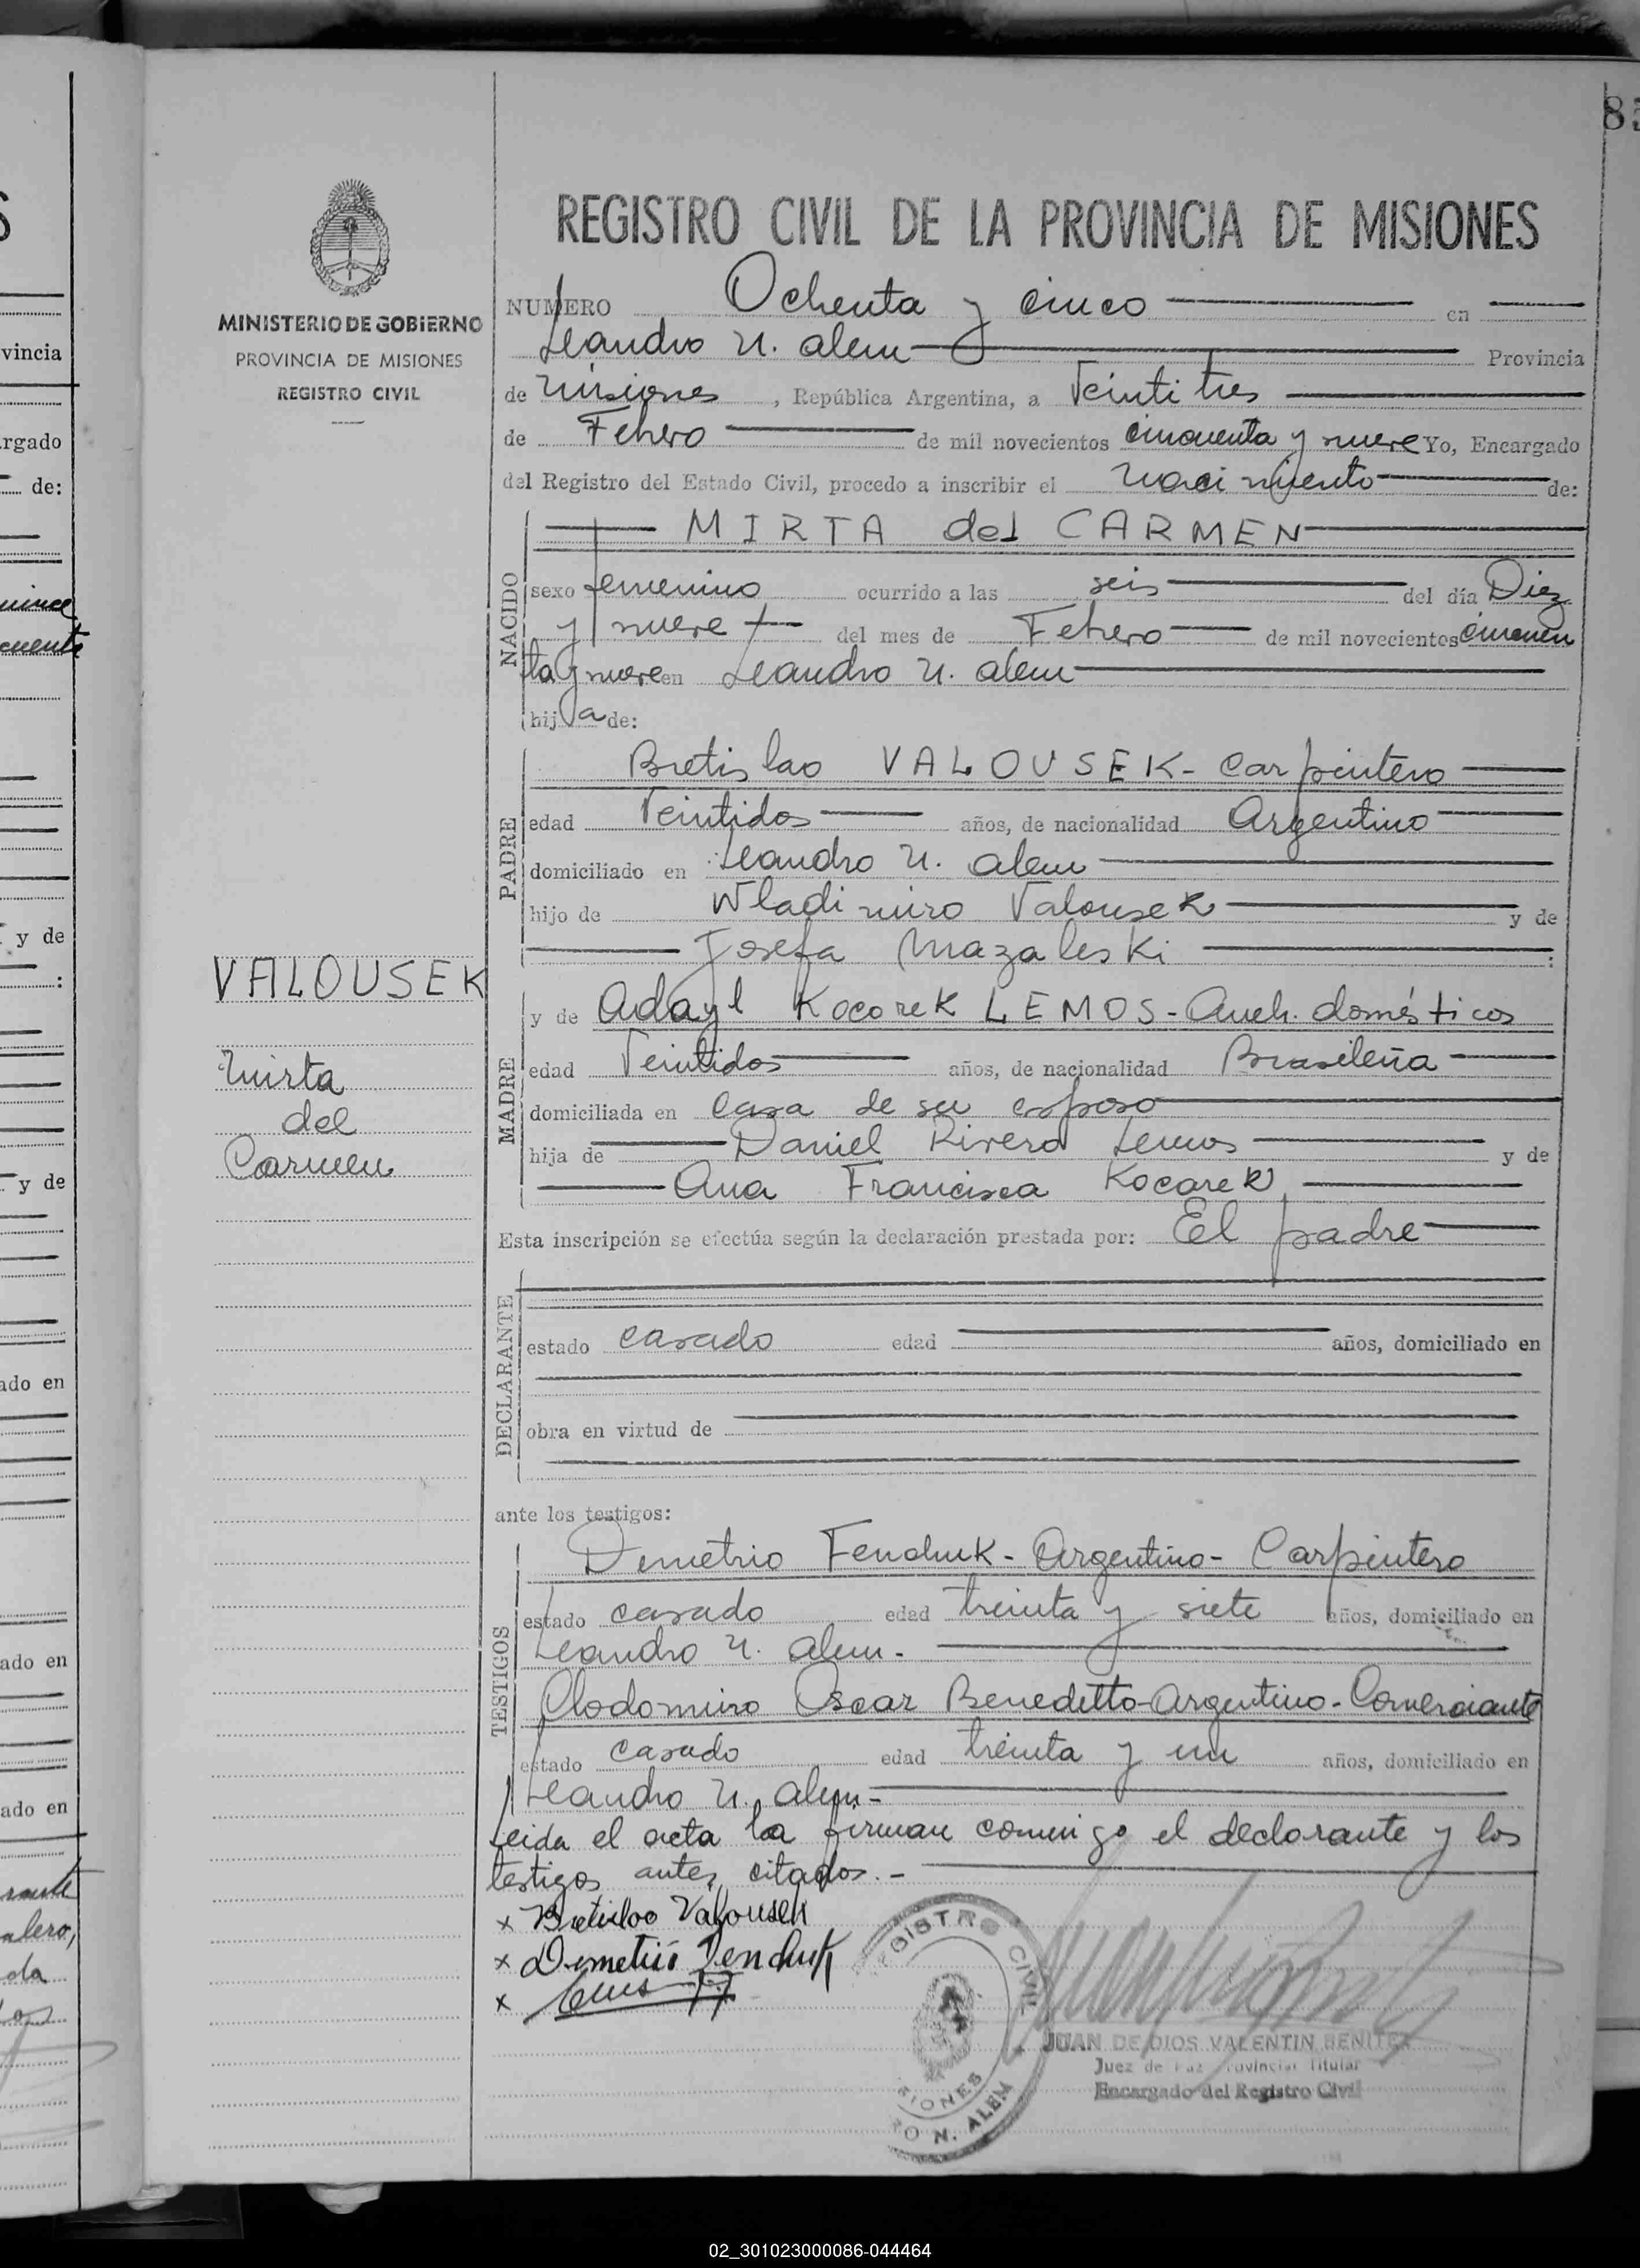 85
REGISTRO CIVIL DE LA PROVINCIA DE MISIONES
MINISTERIO DE GOBIERNO
PROVINCIA DE MISIONES
REGISTRO CIVIL
NUMERO Ochenta y cinco en
Leandro N. Alem Provincia
de Misiones, República Argentina, a Veintitres
de Febrero de mil novecientos cincuenta y nueve Yo, Encargado
del Registro del Estado Civil, procedo a inscribir el nacimiento de:
NACIDO
MIRTA del CARMEN
sexo femenino ocurrido a las seis del día Diez
y nueve del mes de Febrero de mil novecientos cincuen
ta y nueve en Leandro N. Alem
hija de:
PADRE
Bretislao VALOUSEK - Carpintero
edad Veintidos años, de nacionalidad Argentino
domiciliado en Leandro N. Alem
hijo de Wladimiro Valousek y de
Josefa Mazaleski :
VALOUSEK
Mirta
del
Carmen
MADRE
y de Adayl Kocorek LEMOS - Queh. domésticos
edad Veintidos años, de nacionalidad Brasileña
domiciliada en casa de su esposo
hija de Daniel Rivera Lemos y de
Ana Francisca Kocarek
Esta inscripción se efectúa según la declaración prestada por: El padre
DECLARANTE
estado casado edad años, domiciliado en
obra en virtud de
ante los testigos:
TESTIGOS
Demetrio Fenchuk - Argentino - Carpintero
estado casado edad treinta y siete años, domiciliado en
Leandro N. Alem.
Clodomiro Oscar Benedetto - Argentino - Comerciante
estado casado edad treinta y un años, domiciliado en
Leandro N. Alem -
Leida el acta la firman conmigo el declarante y los
testigos antes citados. -
x Bretislao Valousek
x Demetrio Fenchuk
x
REGISTRO CIVIL
MISIONES
N. ALEM
JUAN DE DIOS VALENTIN BENITEZ
Juez de Paz Provincial Titular
Encargado del Registro Civil
vincia
rgado
de:
y de
:
y de
ado en
ado en
ado en
02_301023000086-044464